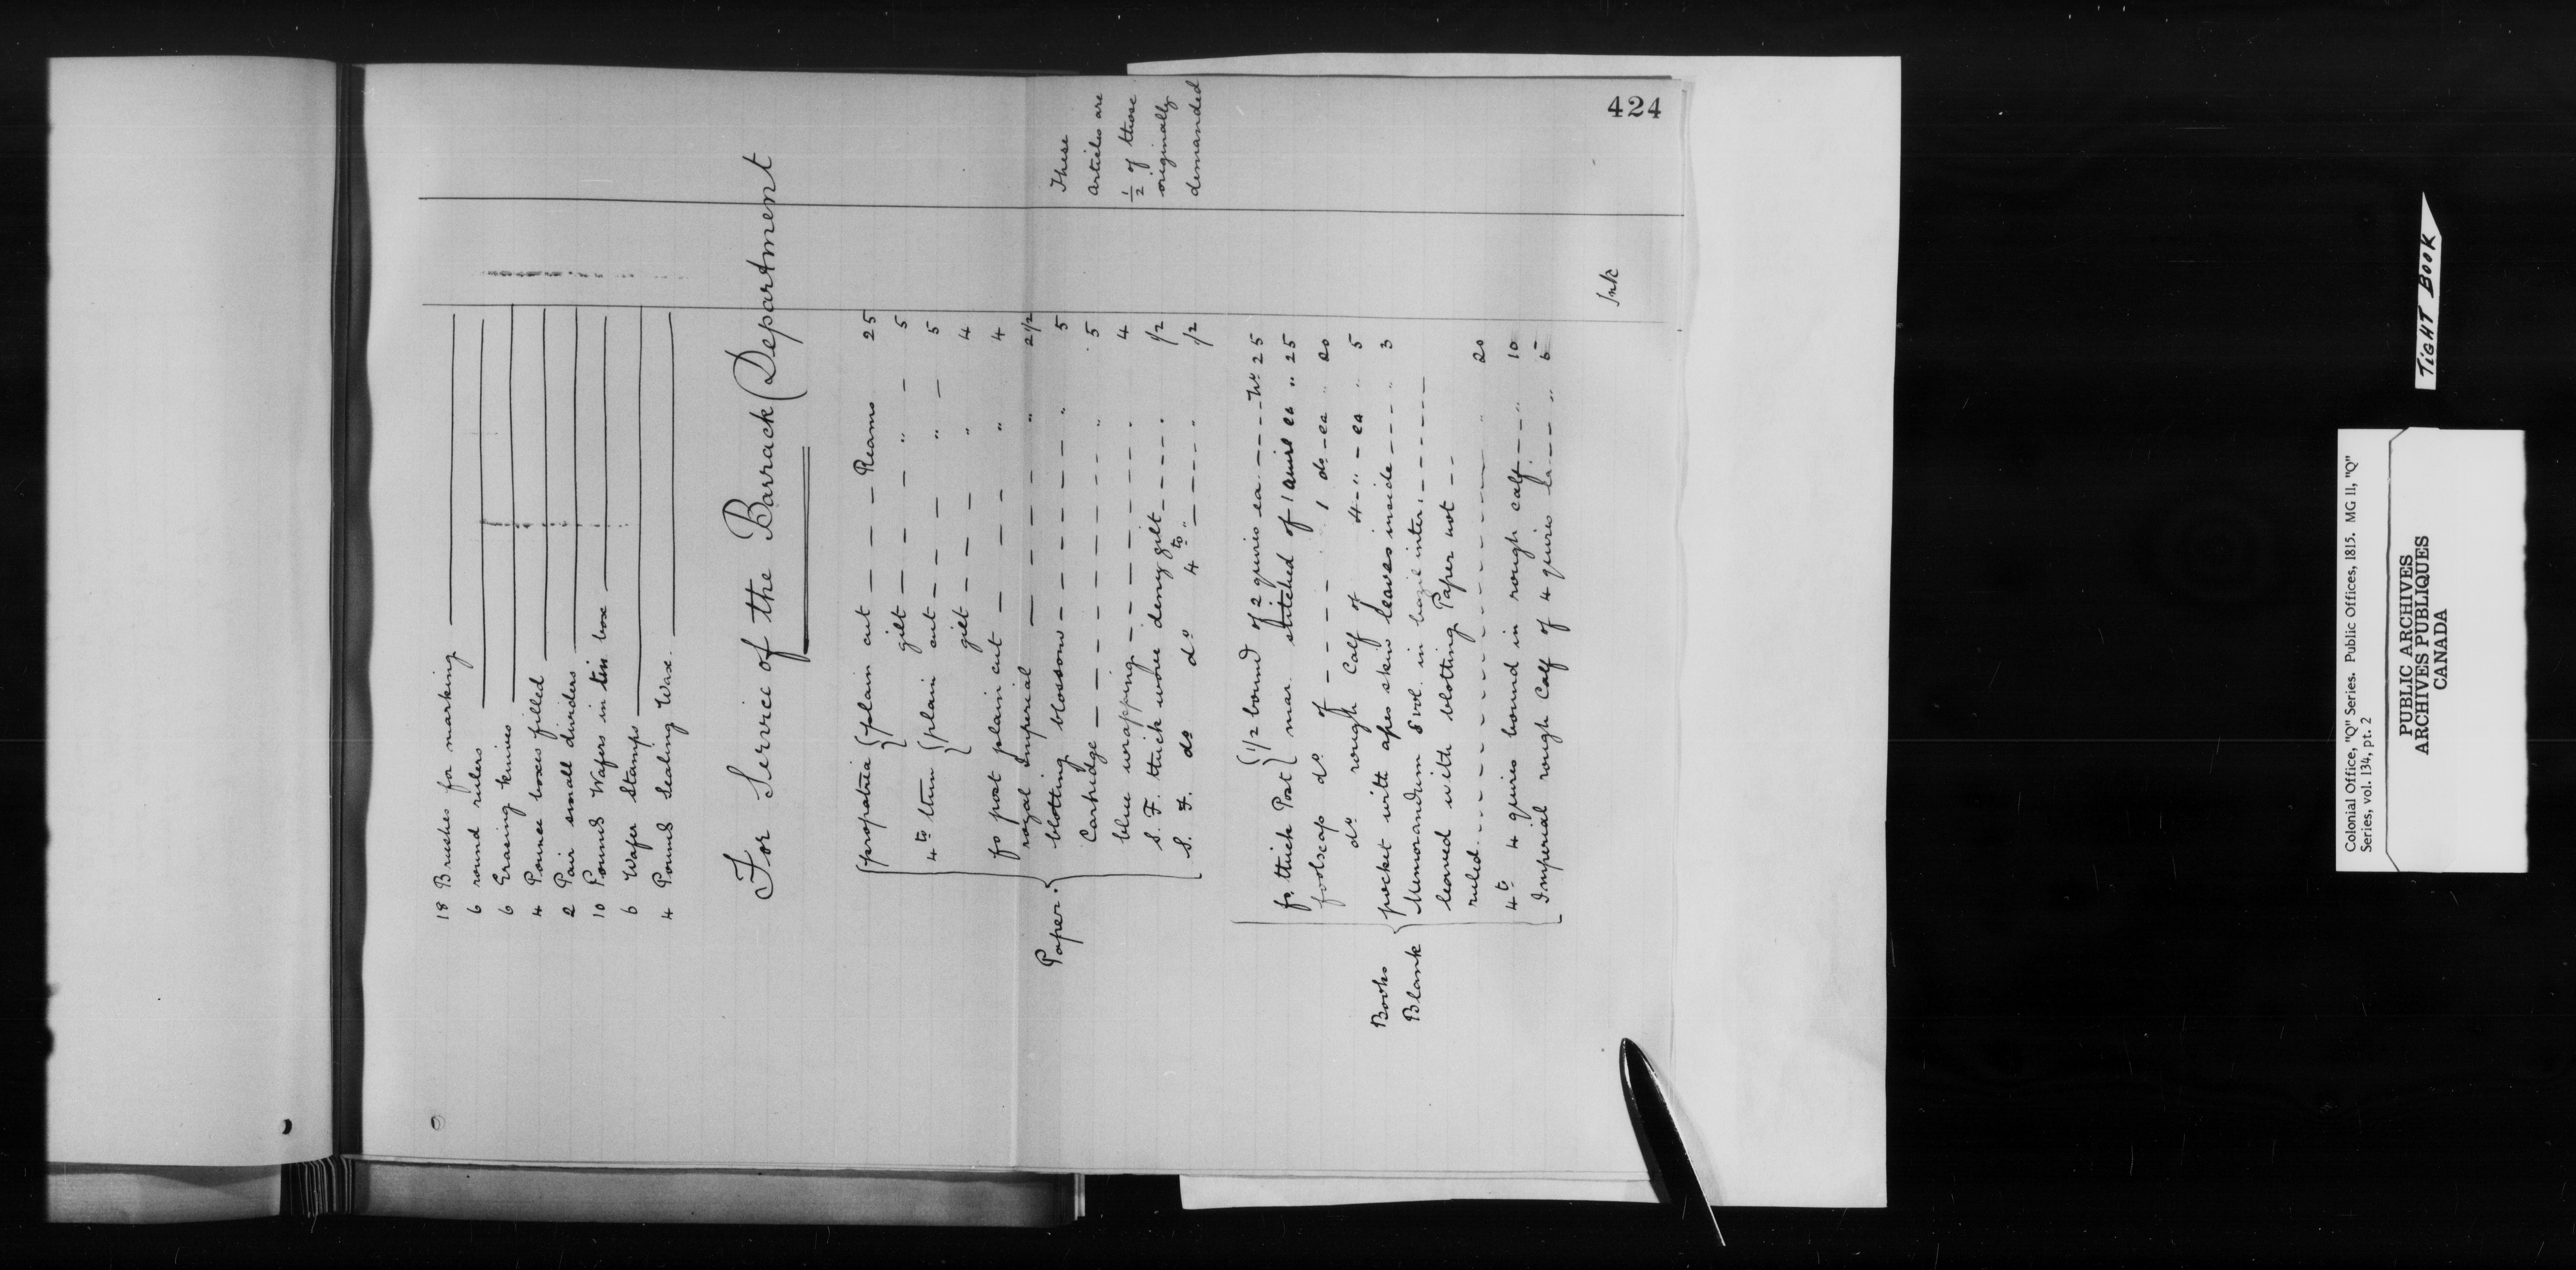 424
18 Brushes for marking
6 round rulers
6 Erasing Knives
4 Pounce boxes filled
2 Pair small dividers
10 Pounds Wafers in tin box
6 Wafer Stamps
4 Pound Sealing Wax.
For Service of the Barrack Department
Paper.
propatria { plain cut — — — — Reams 25
gilt — — — — " — 5
4to thin { plain cut — — — " — 5
gilt — — — " 4
fo post plain cut — — — " 4
royal Imperial — — — — " 2 1/2
blotting blossom — — — — — " 5
Cartridge — — — — — " 5
blue wrapping — — — — — " 4
S. F. thick wove demy gilt — — — — " 1/2
S. F. do do 4to " — — — — " 1/2
These
Articles are
1/2 of those
originally
demanded
Books
Blank
fo. thick Post { 1/2 bound of 2 quires ea — — — No 25
mar. stitched of 1 quire ea " 25
foolscap do of — — — — 1 do — ea " 20
do rough Calf of 4 — " — ea " 5
pocket with apes skin leaves inside — — — " 3
Memorandum 8 vol. in inter. — — — — —
leaved with blotting Paper not — —
ruled — — — — — — — " 20
4to 4 quires bound in rough calf — — — " 10
Imperial rough Calf of 4 quires ea — — " 6
Ink
TIGHT BOOK
Colonial Office, "Q" Series. Public Offices, 1815. MG 11, "Q"
Series, vol. 134, pt. 2
PUBLIC ARCHIVES
ARCHIVES PUBLIQUES
CANADA